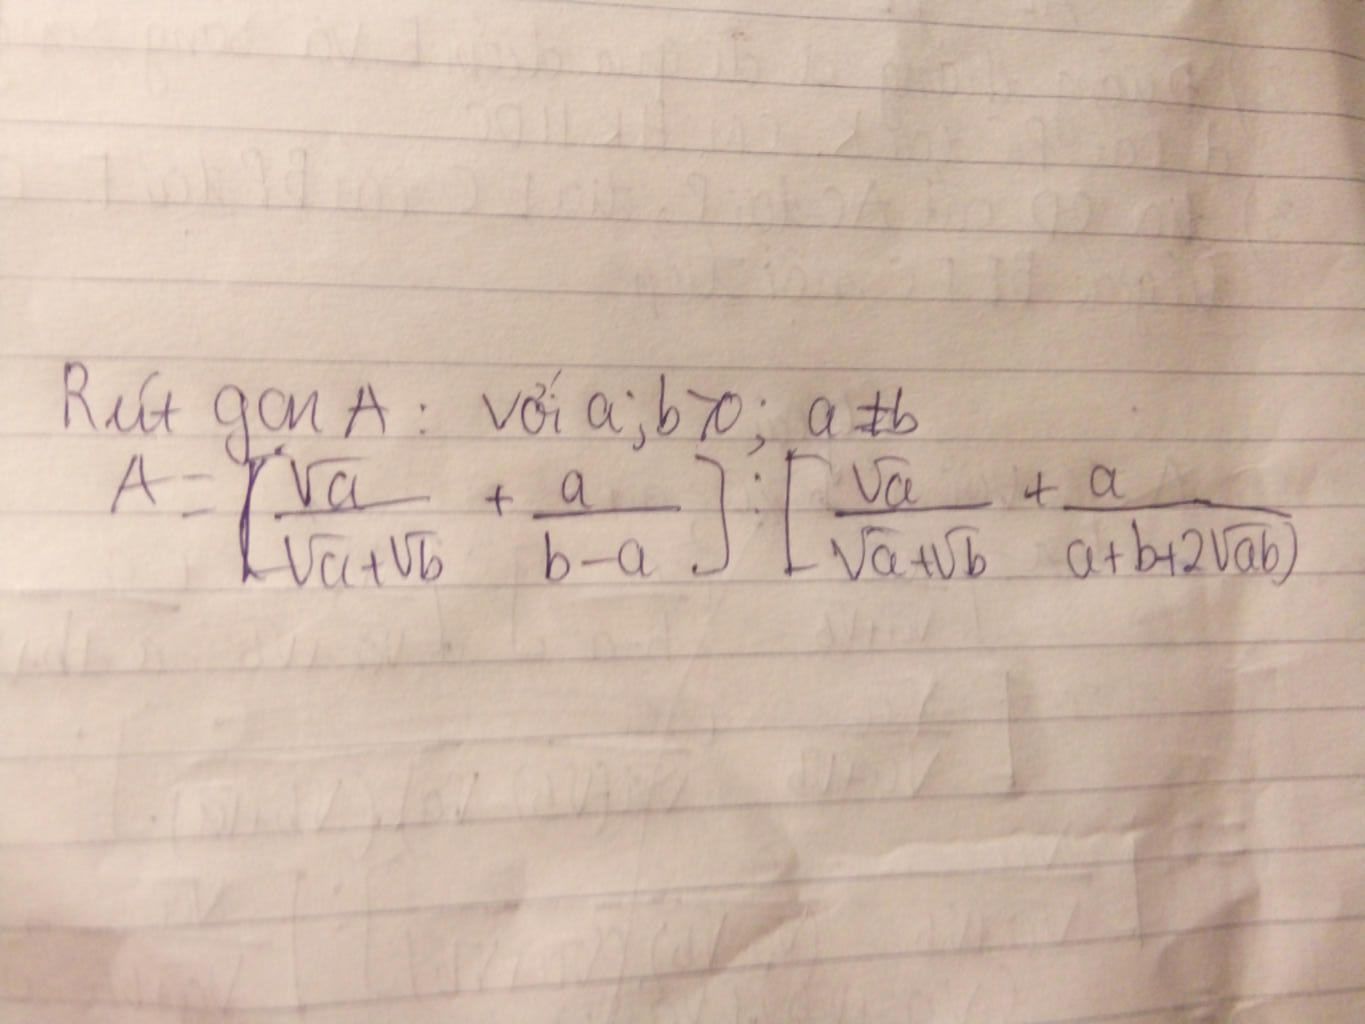 Rút gọn A: với a; b>0; a ≠ b
A = [√a/(√a+√b) + a/(b-a)] : [√a/(√a+√b) + a/(a+b+2√ab)]